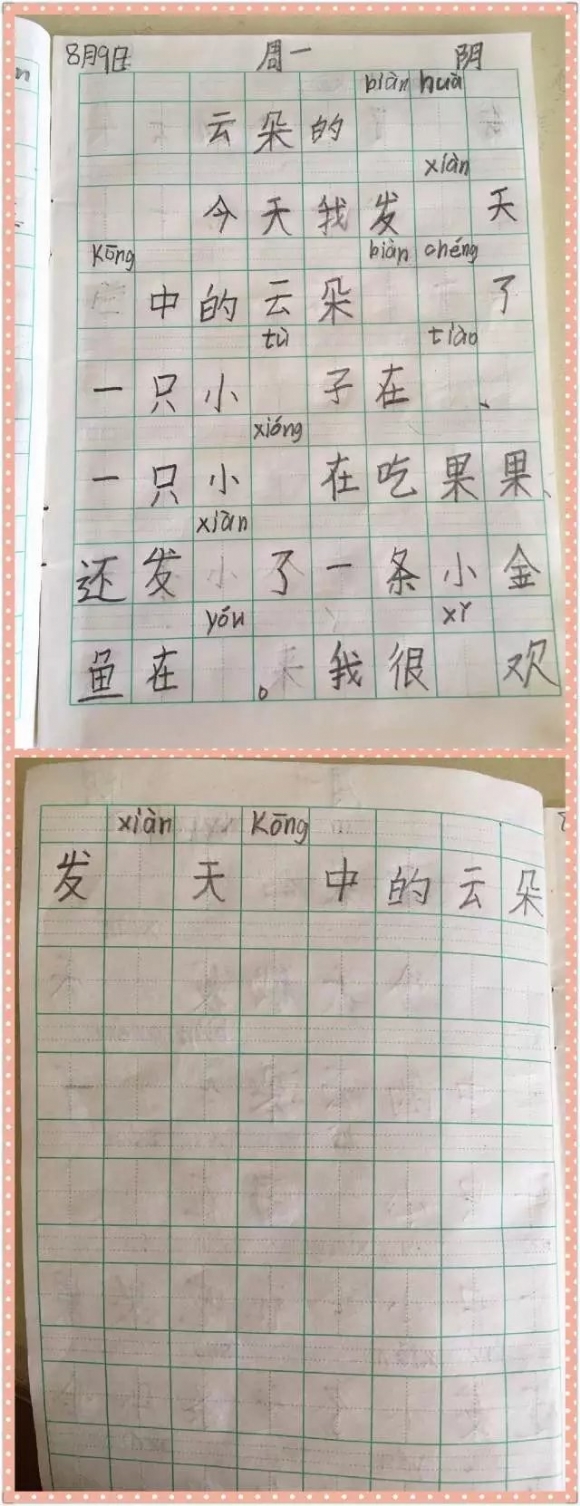 8月9日 周一 阴
云朵的biàn huà
今天我发xiàn天
Kōng中的云朵biàn chéng了
一只小tù子在tiào、
一只小xióng在吃果果、
还发xiàn了一条小金
鱼在yóu。我很xǐ欢
发xiàn天Kōng中的云朵